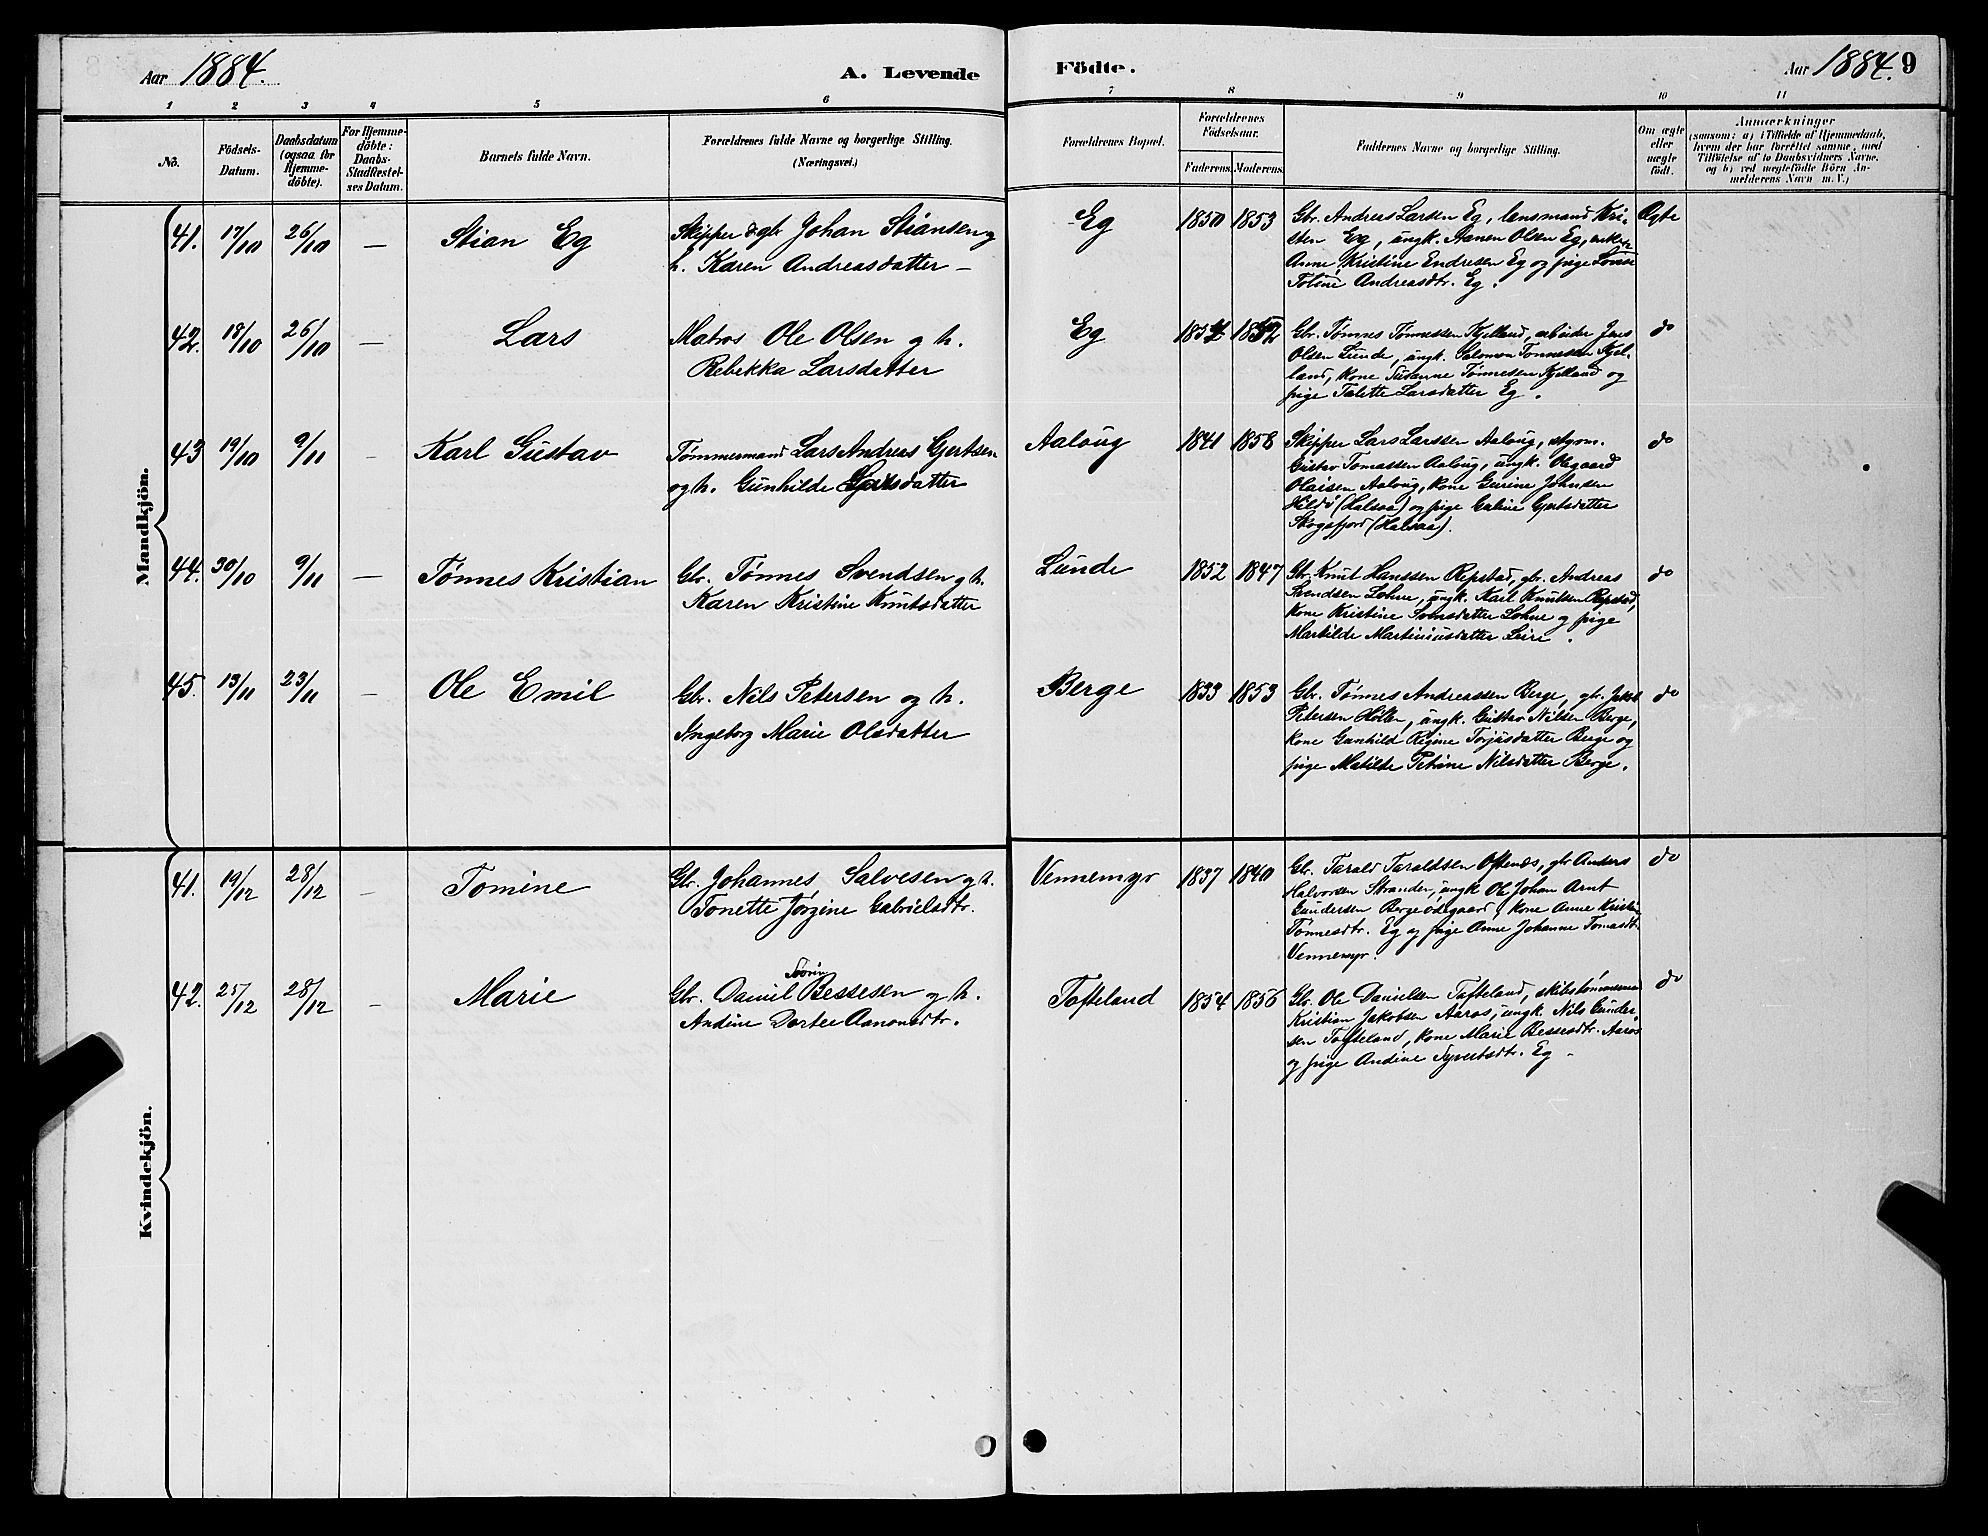 Aar 1884.
A. Levende Födte.
Aar 1884. 9
1 2 3 4 5 6 7 8 9 10 11
No.
Födsels-
Datum.
Daabsdatum
(ogsaa for
Hjemme-
döbte).
For Hjemme-
döbte:
Daabs-
Stadfæstel-
ses Datum.
Barnets fulde Navn.
Forældrenes fulde Navne og borgerlige Stilling.
(Næringsvei.)
Forældrenes Bopæl.
Forældrenes
Födselsaar.
Faderens. Moderens.
Faddernes Navne og borgerlige Stilling.
Om ægte
eller
uægte
födt.
Anmærkninger
(saasom: a) i Tilfælde af Hjemmedaab,
hvem der har forrettet samme, med
Tilföielse af to Daabsvidners Navne,
og b) ved uægtefödte Börn An-
melderens Navn m. V.)
Mandkjön.
41. 17/10 26/10 — Stian Eg
Skipper & gbr Johan Stiansen og
h. Karen Andreasdatter —
Eg 1850 1853
Gbr. Andreas Larsen Eg, lensmand Kri-
sten Eg, ungk. Aanen Olsen Eg, enke
Anne Kristine Endresen Eg og pige
Toline Andreasdtr. Eg.
Ægte
42. 18/10 26/10 — Lars
Matros Ole Olsen og h.
Rebekka Larsdatter
Eg 1852
Gbr. Tønnes Tønnessen Kjelland, arbeider Jens
Olsen Lunde, ungk. Salomon Tønnessen Kjel-
land, kone Susanne Tønnesen Kjelland og
pige Talette Larsdatter Eg.
do
43 19/10 9/11 - Karl Gustav
Tømmermand Lars Andreas Gjertsen
og h. Gunhilde Larsdatter
Aaloug 1841 1858
Skipper Lars Larssen Aaloug, styrm.
Gustav Tomassen Aaloug, ungk. Olegaard
Olaisen Aaloug, kone Gurine Johnsen
Hildø (Halsaa) og pige Galine Gjertsdatter
Skogsfjord (Halsaa).
do
44. 30/10 9/11 — Tønnes Kristian
Gbr. Tønnes Svendsen og h.
Karen Kristine Knutsdatter
Lunde 1852 1847
Gbr. Knut Hanssen Repstad, gbr. Andreas
Svendsen Lohne, ungk. Karl Knutsen Repstad,
kone Kristine Lohne og pige
Martilde Martiniusdatter Leire.
do
45. 13/11 23/11 - Ole Emil
Gbr. Nils Petersen og h.
Ingeborg Marie Olsdatter
Berge 1833 1853
Gbr. Tønnes Andreassen Berge, gbr. Jakob
Petersen ungk. Gustav Nilsen Berge,
kone Gunhild Regine Torjusdatter Berge og
pige Matilde Petrine Nilsdatter Berge.
do
Kvindekjön.
41. 19/12 28/12 - Tomine
Gbr. Johannes Salvesen og h.
Tonette Jørgine Gabrielsdtr.
Vennemyr 1837 1840
Gbr. Tarald Taraldsen Oftenæs, gbr Anders
Halvorsen Stranden, ungk Ole Johan Arnt
Gundersen Berge ødegaard, kone Anne Kristin
Tønnesdtr. Eg og pige Anne Johanne Tomasdtr.
Vennemyr.
do
42. 25/12 28/12 - Marie
Gbr. Daniel Severin Bessesen og h.
Andine Dortee Aanonsdtr.
Tofteland 1854 1856
Gbr. Ole Danielsen Tofteland, skibstømmermand
Kristian Jakobsen Aaros, ungk. Nils Gunder-
sen Tofteland, kone Marie Bessesdtr. Aaros
og pige Andine Syvertsdtr. Eg -
do